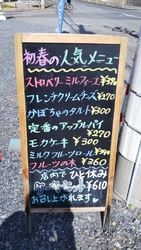 初春の人気メニュー
ストロベリーミルフィーユ
フレンチクリームチーズ¥270
かぼちゃのタルト¥300
定番のアップルパイ
¥270
モカケーキ ¥300
ミルクフルーツロール
フルーツの木 ¥360
店内でひと休み
ケーキセット ¥610
お召し上がれます